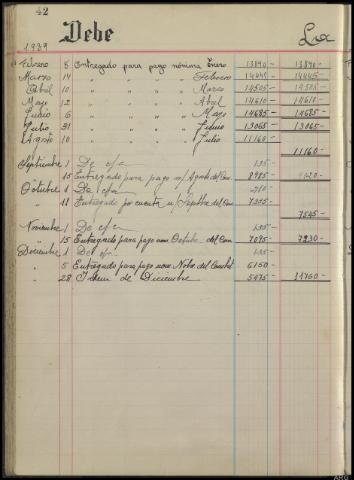 42
Debe
La
1939
Febrero 8 Entregado para pago nómina Enero 13890- 13890-
Marzo 14 " " " " Febrero 14445- 14445-
Abril 10 " " " " Marzo 14505- 14505-
Mayo 12 " " " " Abril 14610- 14610-
Junio 6 " " " " Mayo 14685- 14685-
Julio 31 " " " " Junio 13065- 13065-
Agosto 10 " " " " Julio 11160-
11160-
Septiembre 1 De c/c 135-
15 Entregado para pago n/ Agosto del 8985-
Octubre 1 De c/c 210-
" 11 Entregado por cuenta n/ Septbre del
7545-
Noviembre 1 De c/c 135-
" 15 Entregado para pago nom Octubr. del 7095- 7230-
Diciembre 1 De c/c 135-
" 5 Entregado para pago nom Nobre. del 6150-
" 28 Idem de Diciembre 5475- 11760-